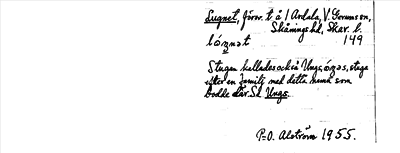 Lugnet, förr. t å 1 Ardala, V. Gerum sn,
Skånings hd, Skar. l.
149
Stugan kallades också Ungs, stuga
efter en familj med detta namn som
bodde där. Se Ungs.
P.O. Alström 1955.